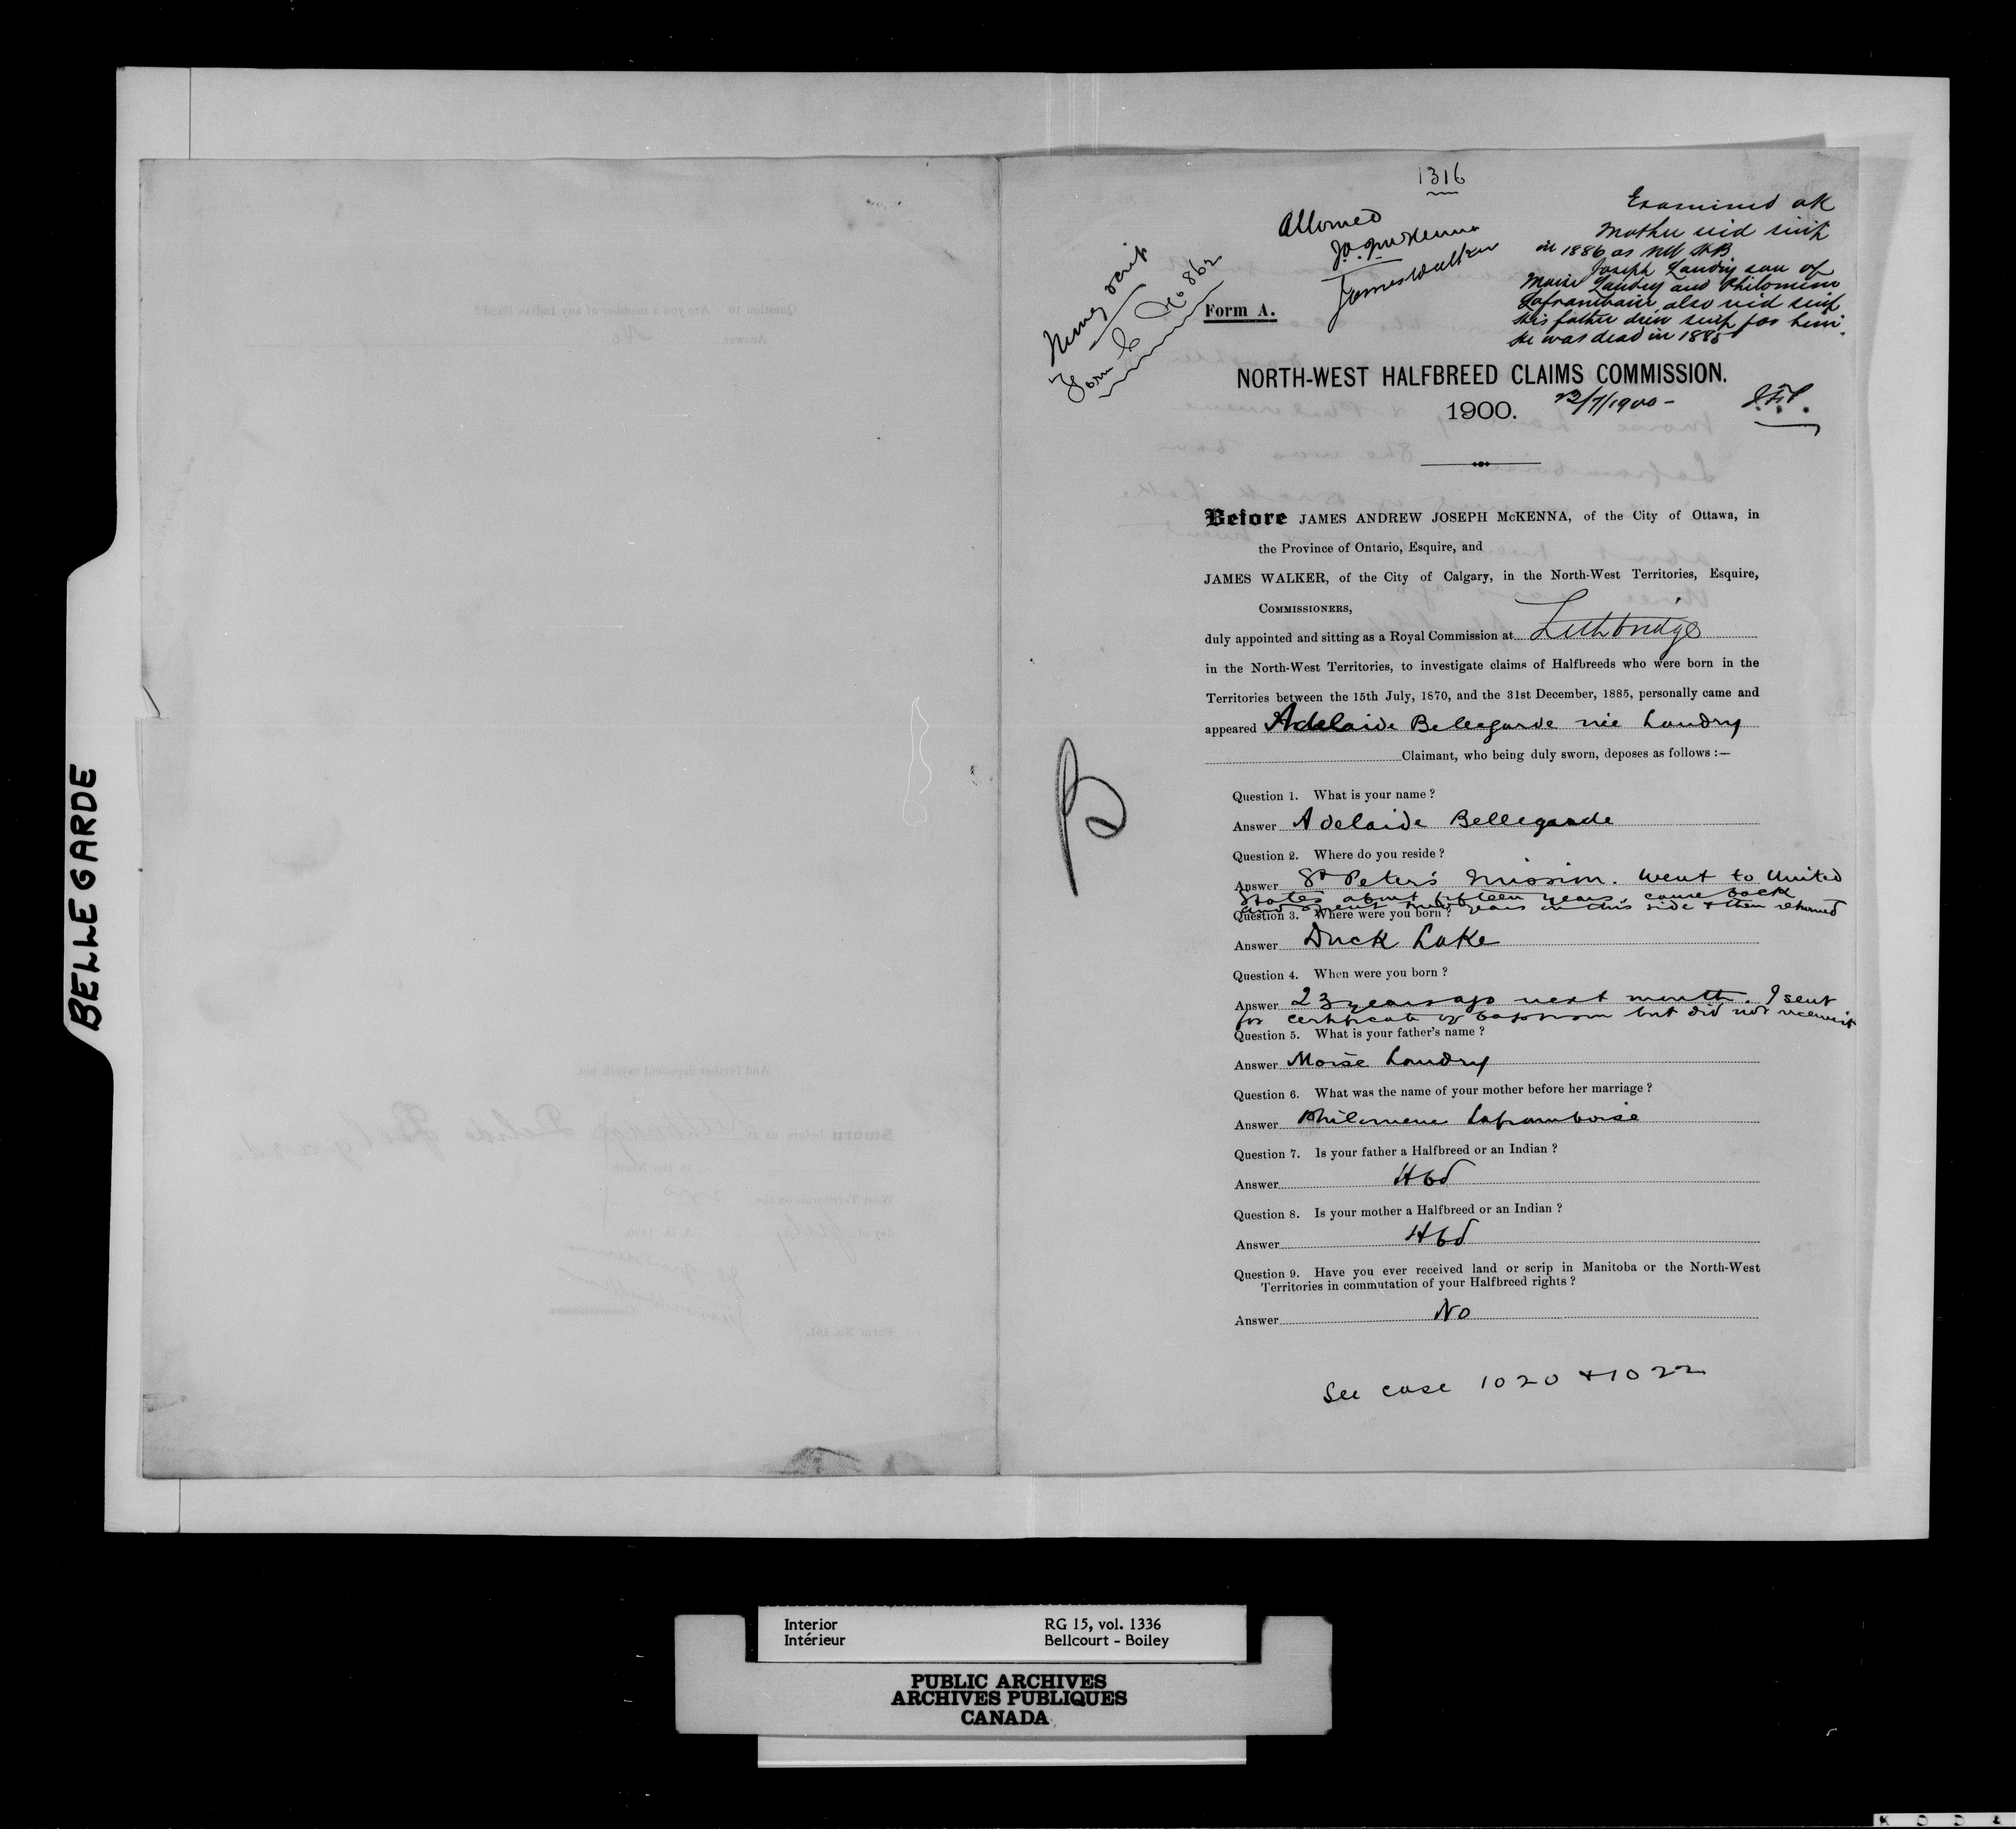 1316
Examined ok
Allowed
Mother recd scrip
J.A.J. McKenna
in 1886 as NW HB
James Walker
Joseph Landry son of
Moise Landry and Philomine
Laframbaire, also recd scrip
His father drew scrip for him.
He was dead in 1885
Money scrip
Form C No 862
Form A.
NORTH-WEST HALFBREED CLAIMS COMMISSION.
1900.
/7/1900 -
Before JAMES ANDREW JOSEPH McKENNA, of the City of Ottawa, in
the Province of Ontario, Esquire, and
JAMES WALKER, of the City of Calgary, in the North-West Territories, Esquire,
COMMISSIONERS,
duly appointed and sitting as a Royal Commission at Lethbridge
in the North-West Territories, to investigate claims of Halfbreeds who were born in the
Territories between the 15th July, 1870, and the 31st December, 1885, personally came and
appeared Adelaide Bellegarde née Landry
Claimant, who being duly sworn, deposes as follows :—
Question 1. What is your name ?
Answer Adelaide Bellegarde
Question 2. Where do you reside ?
Answer St Peter's Mission. Went to United
States about fifteen years, came back
and spent two years on this side & then returned
Question 3. Where were you born ?
Answer Duck Lake
Question 4. When were you born ?
Answer 23 years ago next month. I sent
for certificate of baptism but did not receive it
Question 5. What is your father's name ?
Answer Moise Landry
Question 6. What was the name of your mother before her marriage ?
Answer Philomene Laframboise
Question 7. Is your father a Halfbreed or an Indian ?
Answer Hbd
Question 8. Is your mother a Halfbreed or an Indian ?
Answer Hbd
Question 9. Have you ever received land or scrip in Manitoba or the North-West
Territories in commutation of your Halfbreed rights ?
Answer No
See case 1020 & 1022
B
BELLEGARDE
Interior
Intérieur
RG 15, vol. 1336
Bellcourt - Boiley
PUBLIC ARCHIVES
ARCHIVES PUBLIQUES
CANADA